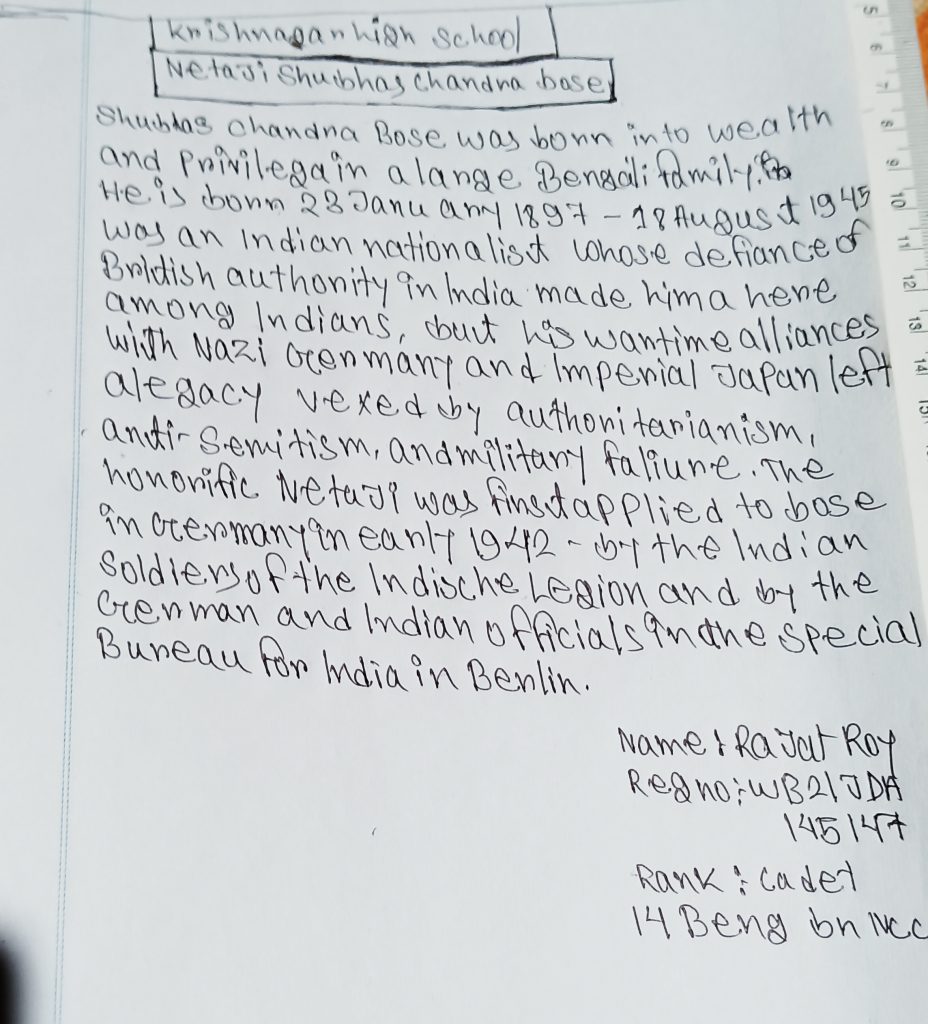 Krishnagar high School
Netaji Shubhas Chandra bose
Shubhas Chandra Bose was born into wealth
and Privilega in a large Bengali family.
He is born 23 January 1897 - 18 August 1945
was an Indian nationalist whose defiance of
Bridtish authority in India made him a here
among Indians, but his wartime alliances
with Nazi Germany and Imperial Japan left
a legacy vexed by authoritarianism,
anti-Semitism, and military faliure. The
honorific Netaji was first applied to bose
in Germany in early 1942 - by the Indian
Soldiers of the Indische Legion and by the
German and Indian officials in the Special
Bureau for India in Berlin.
Name : Rajat Roy
Reg no : WB21JDA
145147
Rank : Cadet
14 Beng bn NCC
5 6 7 8 9 10 11 12 13 14 15